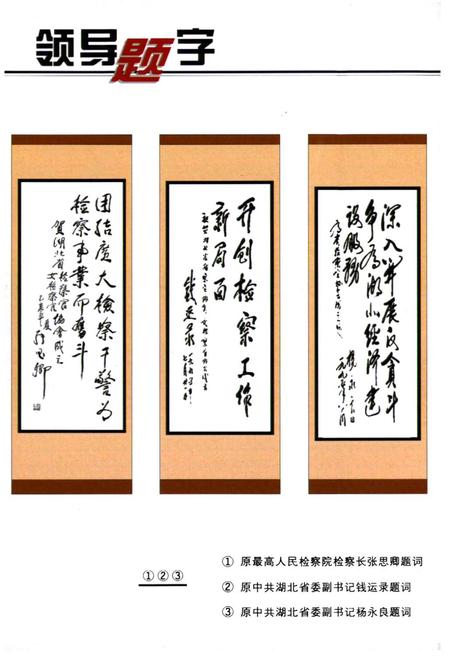 领导题字
团结广大检察干警为
检察事业而奋斗
贺湖北省检察官协会成立
女检察官
张思卿
开创检察工作
新局面
钱运录
深入开展反贪斗
争为湖北经济建
设服务
杨永良
①②③
① 原最高人民检察院检察长张思卿题词
② 原中共湖北省委副书记钱运录题词
③ 原中共湖北省委副书记杨永良题词